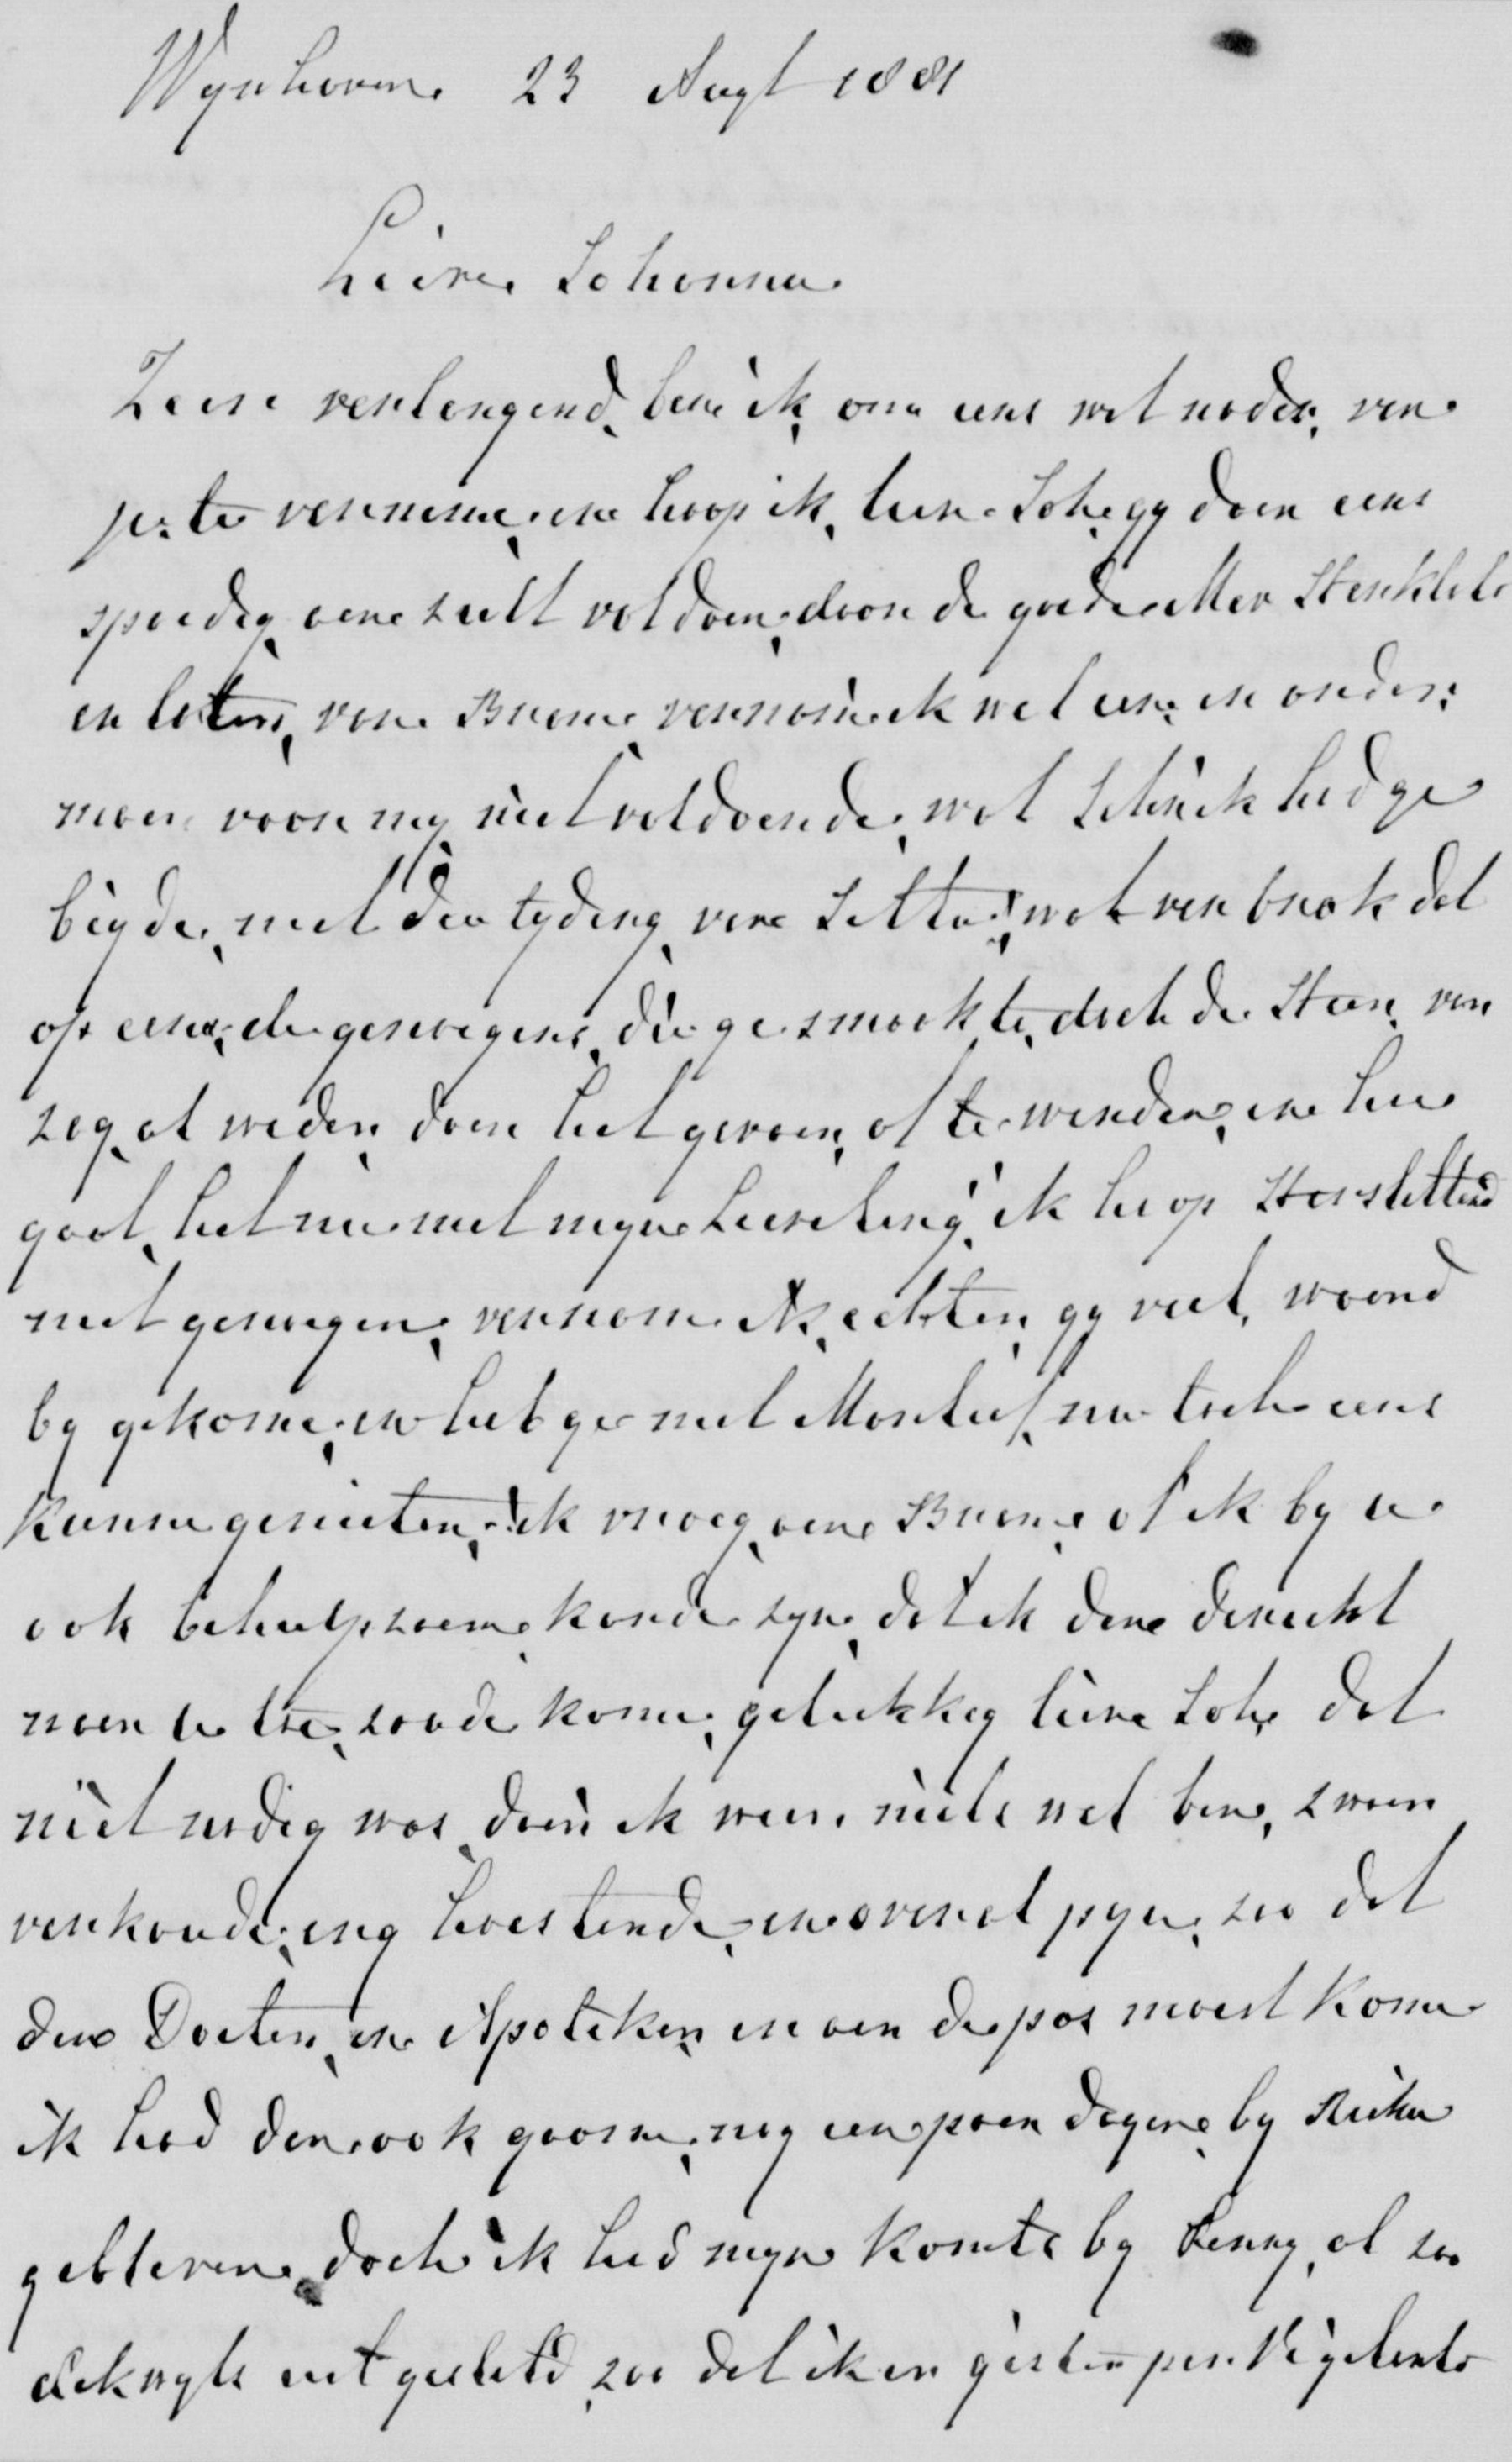 Wynhoven 23 Augt 1881
Lieve Johanna
Zeer verlangend, ben ik, om eens wat nader, van
je te verneme, en hoop ik, lieve Joh, gy daar eens
spoedig aan zult voldoen, door de goede Mev
en laten, van Bram vernam ik wel een en ander,
maar voor my niet voldoende, wat schrik had ge
byde, met die tyding van Jetta, wat verbrak dat
op eens, de genoegens, die ge smaakte, doch de Heer van
zeg, al weder, daar het gevaar, af te wenden, en hoe
gaat het nu met myne Lieveling, ik hoop
met genoegen, vernam ik, echter, gy veel, waard
by gekome, en hebt ge met Martus, nu toch eens
kunne genieten, ik vroeg aan Bram, of ik by u
ook behulpzaam konde zyn, dat ik dan direckt
naar u toe, zoude kome, gelukkig lieve Joh, dat
niet nodig was, daar ik weer niets wel ben, zwaar
verkoude, erg hoestende, en overal pyn, zoo dat
den Docter, en Apoteker, er aan de pas moest kome
ik had dan ook gaarne, nog een paar dagen, by Rika
gebleven, doch ik had myn komst by Henny, al zoo
dikwyls uit gesteld, zoo dat ik er gister per Vigelante